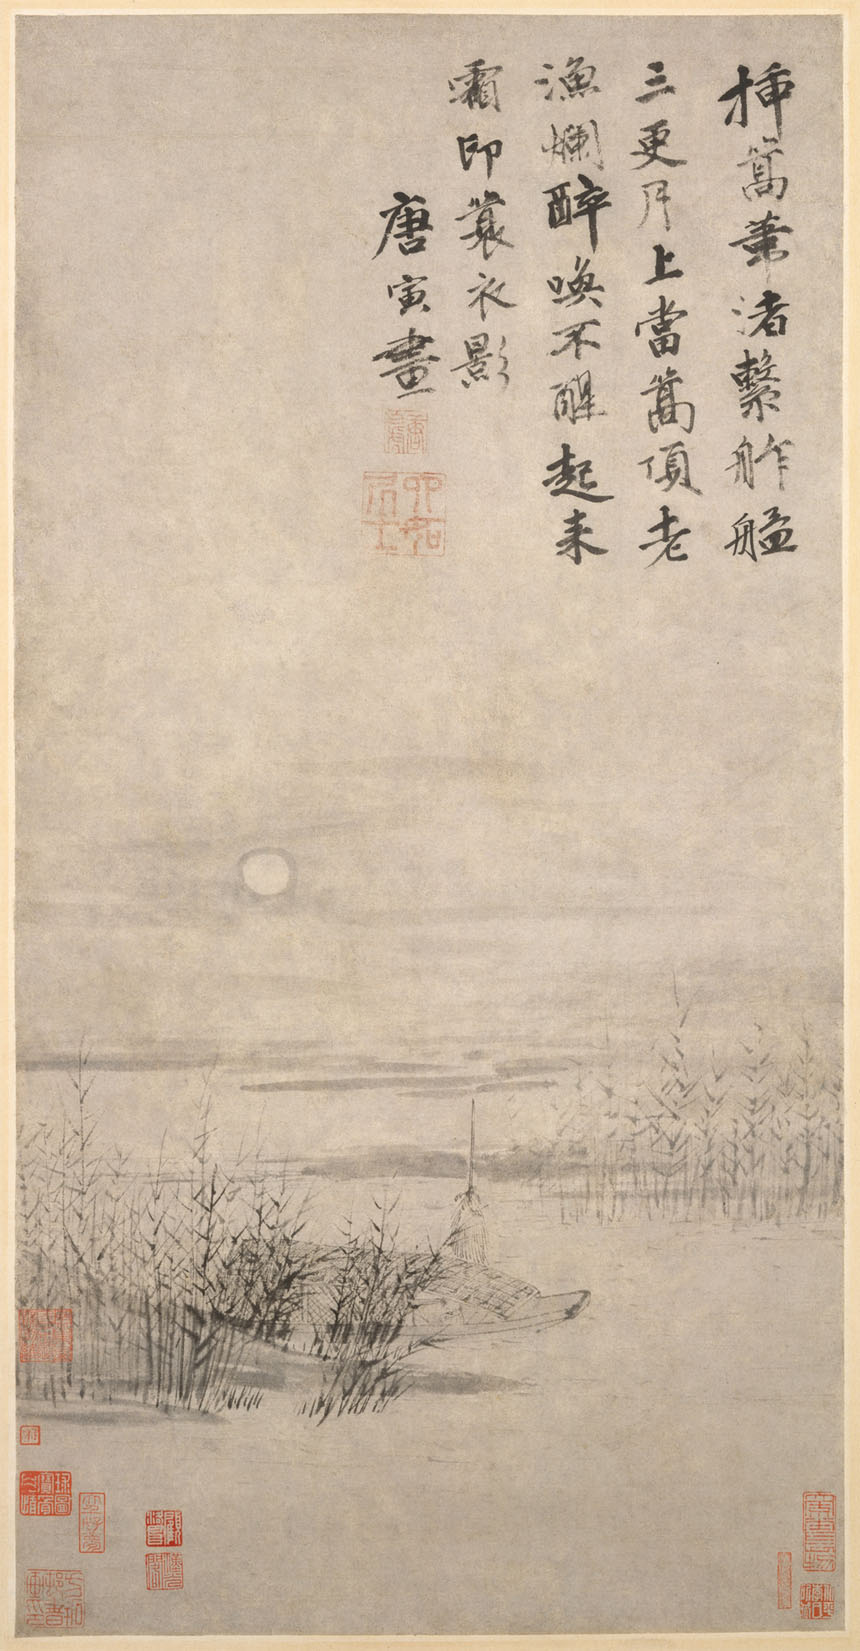 插篙葦渚繫舴艋
三更月上當篙頂老
漁爛醉喚不醒起來
霜印蓑衣影
唐寅畫
六如居士